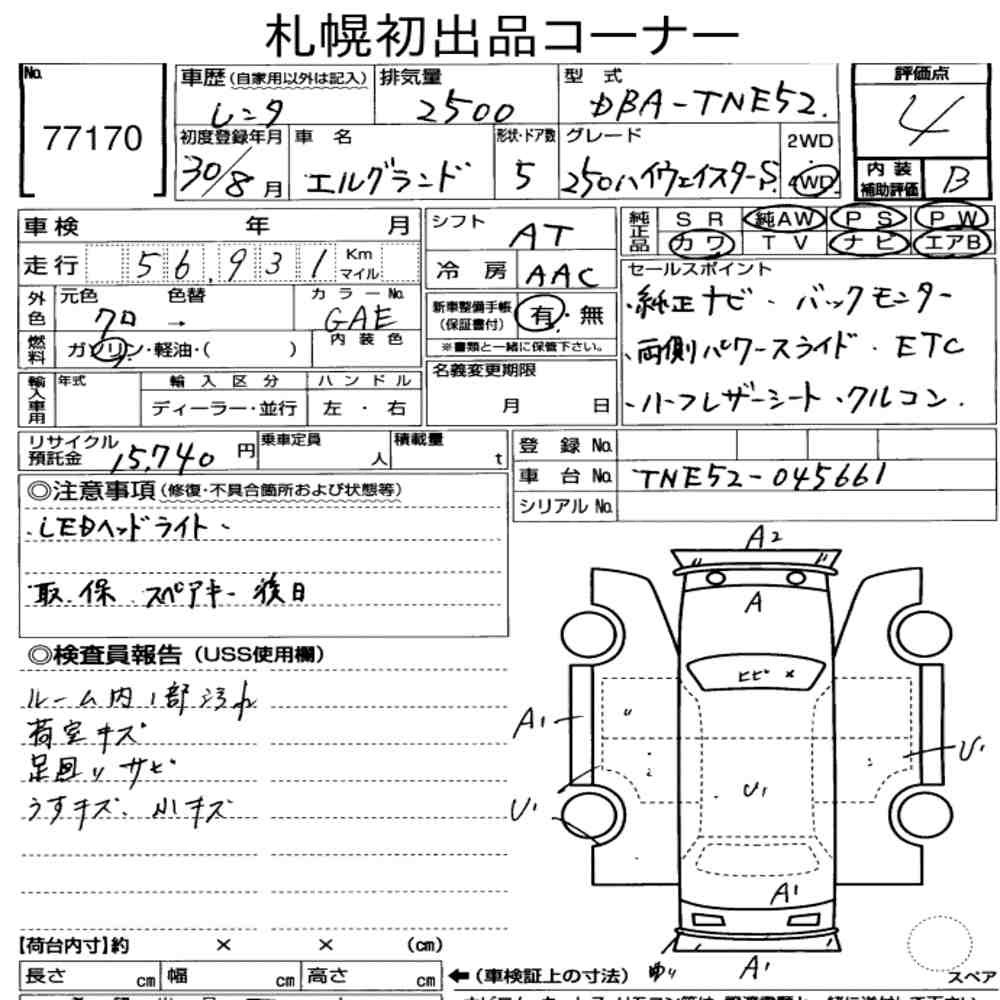 札幌初出品コーナー
No. 77170
車歴 (自家用以外は記入) レンタ
排気量 2500
型式 DBA-TNE52.
評価点 4
初度登録年月 30/8 月
車名 エルグランド
形状・ドア数 5
グレード 250ハイウェイスターS
2WD
4WD
内装補助評価 B
車検 年 月
走行 56,931 Km マイル
シフト AT
冷房 AAC
純正品 SR 純AW PS PW
カワ TV ナビ エアB
外色 元色 クロ → 色替
カラーNo. GAE
燃料 ガソリン・軽油・( )
内装色
新車整備手帳 (保証書付) 有・無
※書類と一緒に保管下さい。
セールスポイント
・純正ナビ・バックモニター
・両側パワースライド・ETC
・ハーフレザーシート・クルコン.
輸入車用 年式 輸入区分 ハンドル
ディーラー・並行 左・右
名義変更期限
月 日
リサイクル預託金 15,740 円
乗車定員 人
積載量 t
登録No.
車台No. TNE52-045661
シリアルNo.
◎注意事項 (修復・不具合箇所および状態等)
・LEDヘッドライト・
取.保 スペアキー 後日
◎検査員報告 (USS使用欄)
ルーム内1部汚れ
荷室キズ
足回りサビ
うすキズ、小キズ
A2
A
ヒビ ×
A1
U1
U1
U1
A1
A1
【荷台内寸】約 × × (cm)
長さ cm 幅 cm 高さ cm
←(車検証上の寸法)
スペア